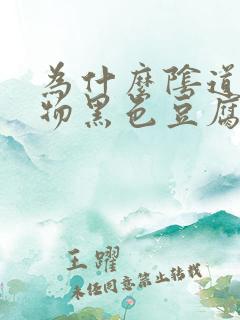 為什麼陰道
物黑色豆腐
王躍
未经同意禁止转载